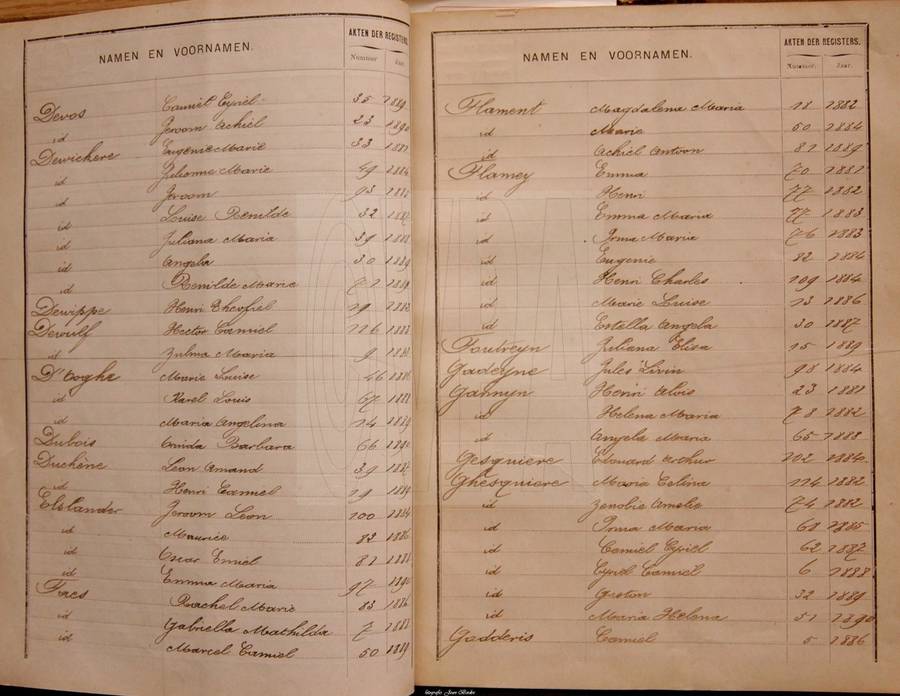 NAMEN EN VOORNAMEN.
AKTEN DER REGISTERS.
Nummer Jaar.
Devos Camiel Cyriel 35 1889
id Jeroom Achiel 23 1890
Dewichere Eugenie Marie 33 1881
id Julienne Marie 49 1884
id Jeroom 93
id Louise Renilde 32 1887
id Juliana Maria 39 1888
id Angela 30 1889
id Renilde Marie
Dewippe Henri Theofiel 19
Dewulf Hector Camiel 116 1888
id Zulma Maria 9
D'hooghe Marie Louise 46
id Karel Louis 67 1888
id Maria Angelina 14 1889
Dubois Barbara 66 1890
Duchêne Leon Amand 39 1887
id Henri Camiel 19
Elslander Jeroom Leon 100 1884
id Maurice 82 1886
id Oscar Emiel 81
id Emma Maria 17 1890
Faes Rachel Marie 83 1886
id Gabriella Mathilda 7 1888
id Marcel Camiel 50 1889
NAMEN EN VOORNAMEN.
AKTEN DER REGISTERS.
Nummer. Jaar.
Flament Magdalena Maria 18 1882
id Marie 50 1884
id Achiel Antoon 81 1889
Flamey Emma 70 1881
id Henri 77 1882
id Emma Maria 77 1883
id Irma Maria 76 1883
id Eugenie 82 1884
id Henri Charles 109 1884
id Marie Louise 13 1886
id Estella Angela 30 1887
Foutreyn Juliana Elisa 15 1889
Gadeyne Jules Livin 98 1884
Gannyn Henri Alois 23 1881
id Helena Maria 78 1882
id Angela Maria 65 1888
Gesquiere Edouard Arthur 102 1884
Ghesquiere Maria Celina 114 1882
id Zenobie Amelie 74 1882
id Irma Maria 68 1885
id Camiel Cyriel 62 1887
id Cyriel Camiel 6 1888
id Gaston 32 1889
id Maria Helena 51 1890
Godderis Camiel 5 1886